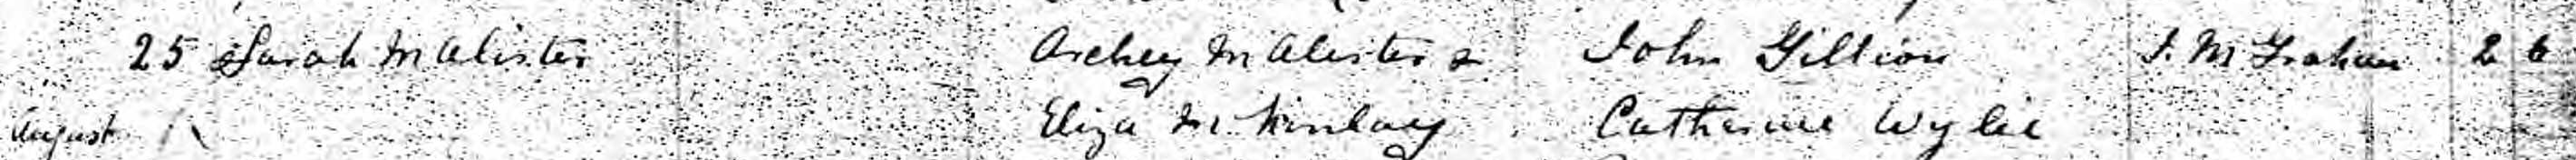 25 Sarah McAlister Archey McAlister & John Gillion J. McGrahan 2 6
August Eliza McKinlay Catherine Wylie